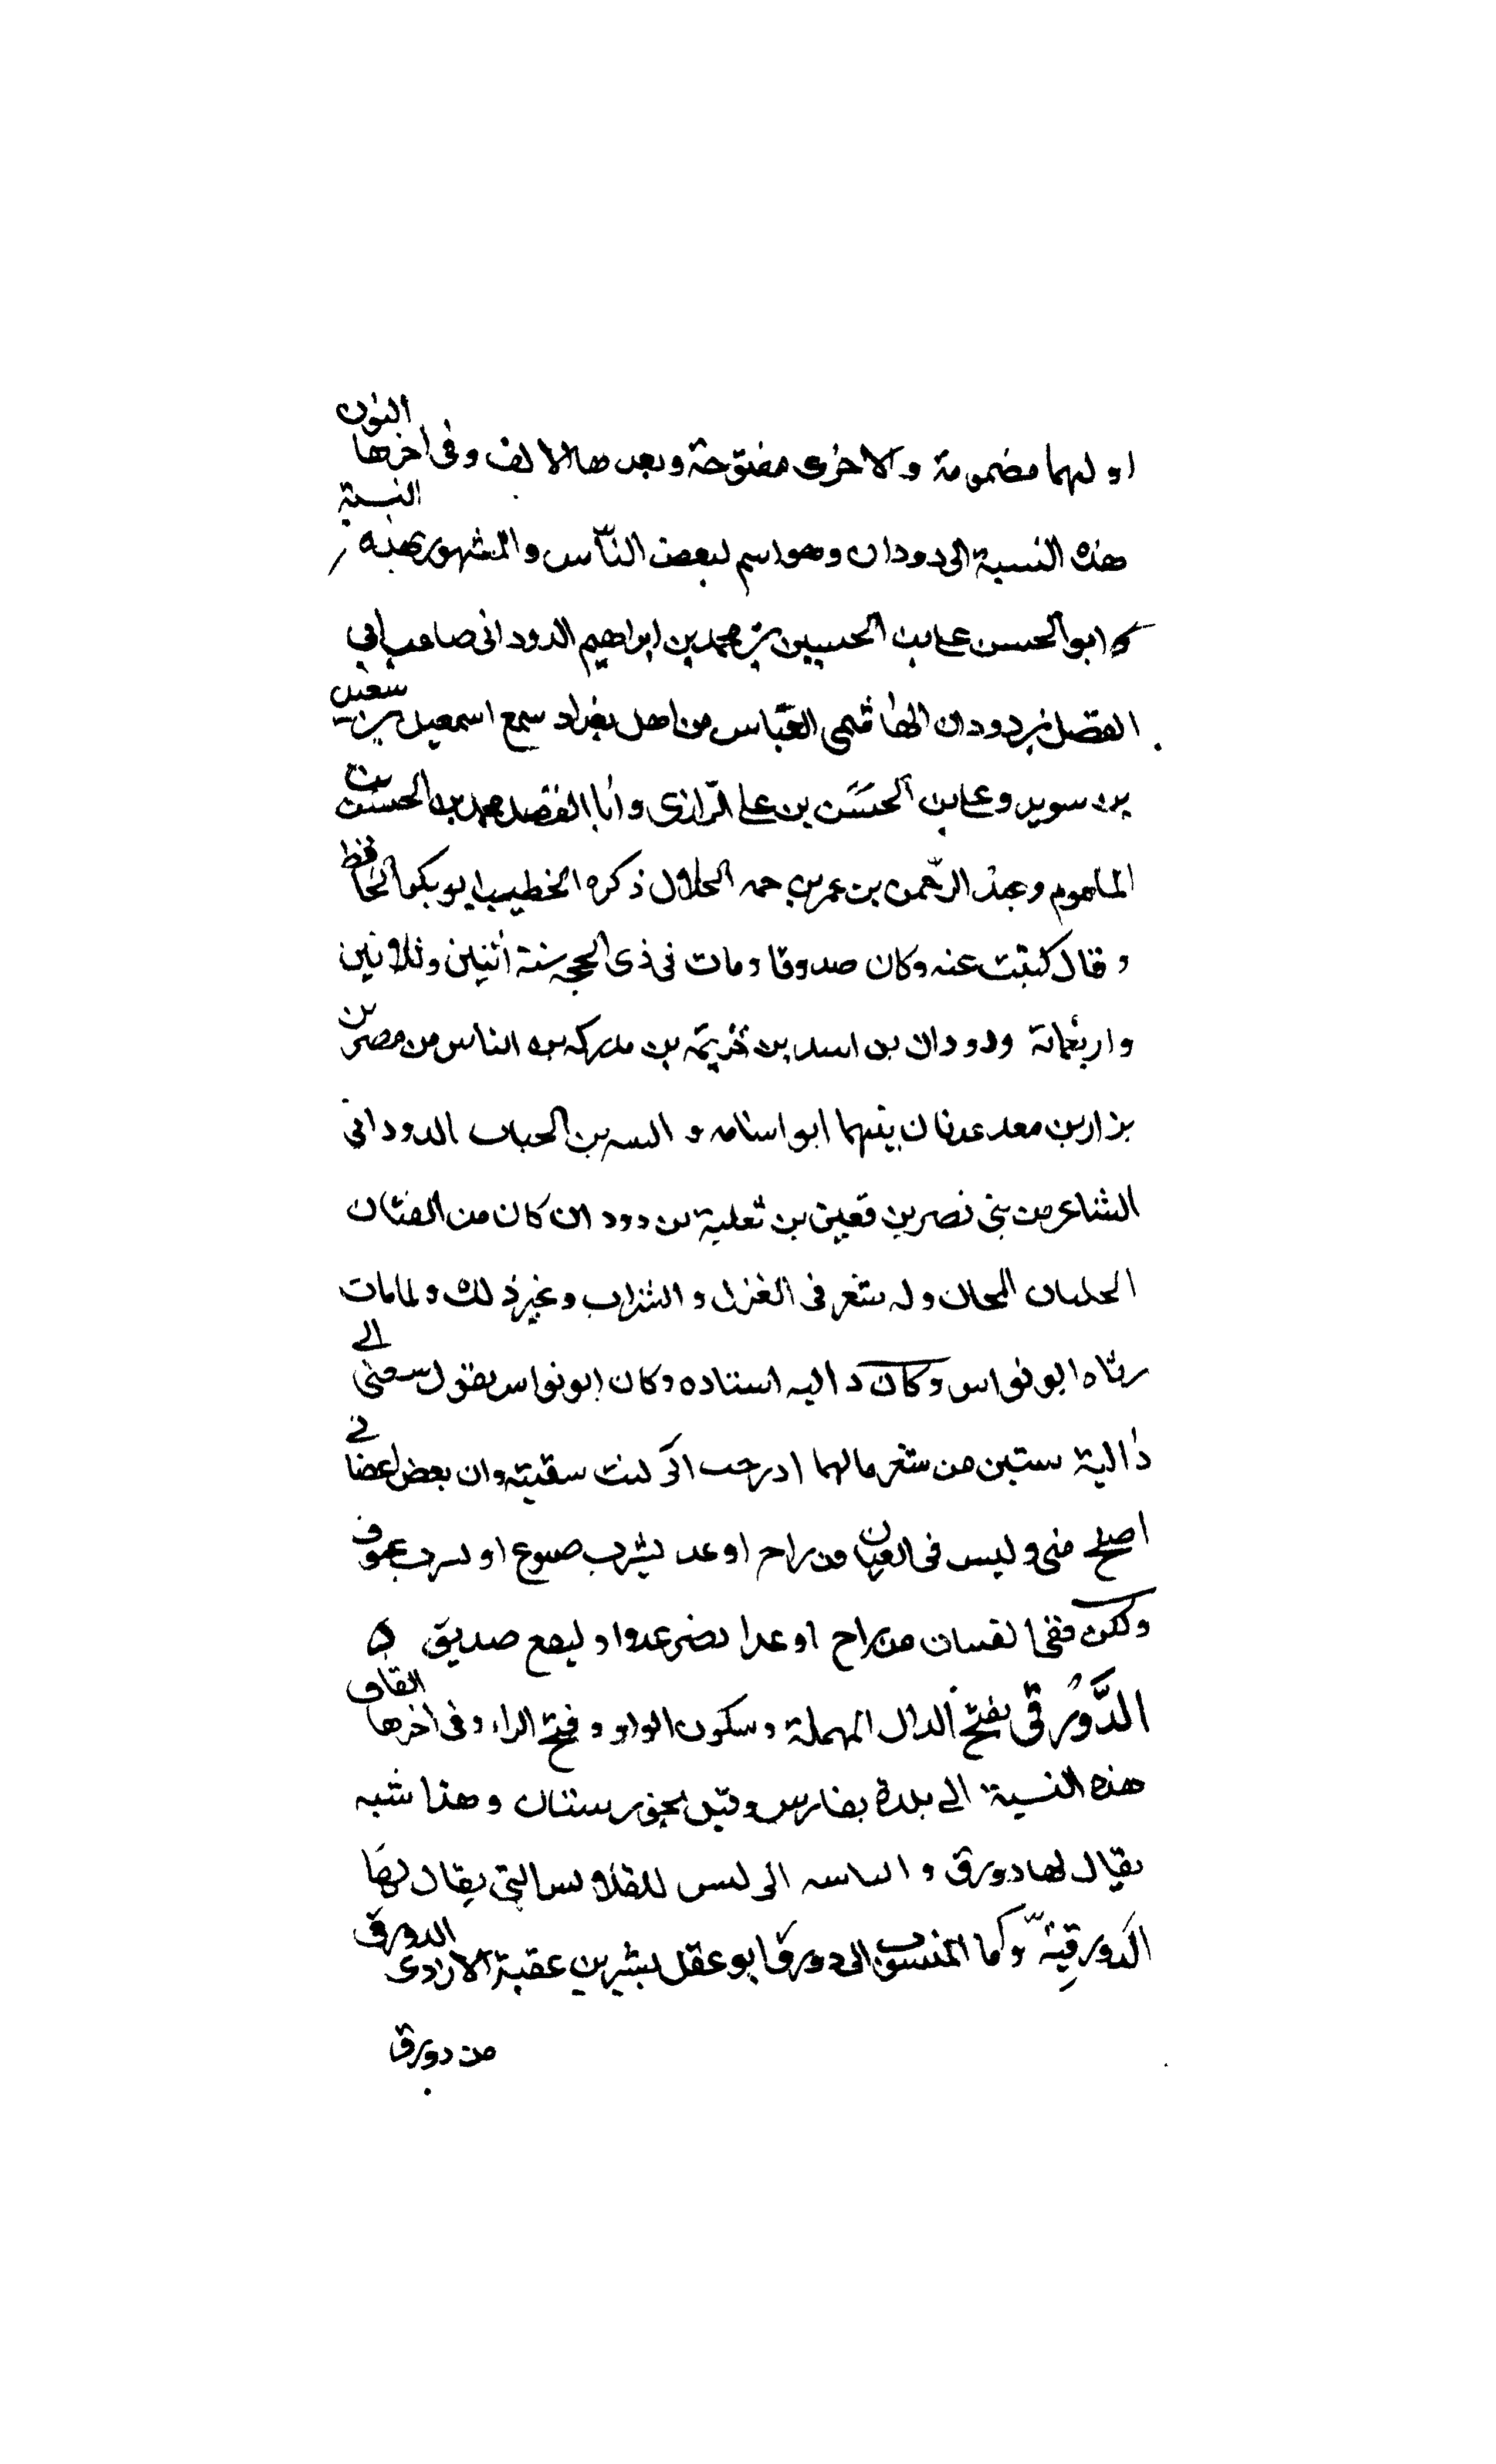 اولهما مضمومة والاخرى مفتوحة وبعدها الالف وفي اخرها النون
هذه النسبة الى دودان وهو اسم لبعض الناس والمشهور بهذه النسبة
ابو الحسن على بن الحسين بن محمد بن ابراهيم الدوداني صاحب ابي
الفضل بن دودان الهاشمي العباس من اهل بغداد سمع اسمعيل بن سعيد
بن سويد وعلى بن الحسن بن علي الرازي وابا الفضل محمد بن الحسن بن
المامون وعبد الرحمن بن عمر بن حمه الخلال ذكره الخطيب ابو بكر الحافظ
وقال كتبت عنه وكان صدوقا ومات في ذي الحجه سنة اثنين وثلاثين
واربعمائة ودودان بن اسد بن خزيمة بن مدركه بن الناس من مضر بن
نزار بن معد عدنان ابو اسامه و بن الحباب الدوداني
الشاعر من بني نصر بن قعين بن ثعلبة بن دودان كان من الفتيان
المجان وله شعر في الغزل والشراب وغير ذلك ولما مات
رثاه ابو نواس وكان والبه استاده وكان ابو نواس يقول سبقني الى
دالية ستين من شعر مالهما سقيته وان بعض اعضا في
اصلح مني وليس في الفتيان من راح او غدا لشرب صبوح او لشرب غبوق
ولكن فتى الفتيان من راح او غدا لضر عدو او لنفع صديق ه
الدَّوْرَقي بفتح الدال المهملة وسكون الواو وفتح الراء وفي اخرها القاف
هذه النسبة الى بلدة بفارس وقيل بخورستان وهذا شبه
يقال لها دورق و الى لبس للقلانس التي يقال لها
الدورقية وكما المنسوب الى دورق ابو عقل بشير بن عقبة الازدي الدورقي
من دورق